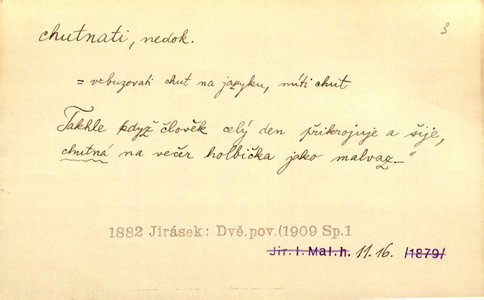 chutnati, nedok.
3
= vzbuzovati chuť na jazyku, míti chuť
Takhle když člověk celý den přikrojuje a šije,
chutná na večer holbička jako malvaz_"
1882 Jirásek: Dvě.pov.(1909 Sp.1
Jir. I. Mal. h. 11.16. /1879/